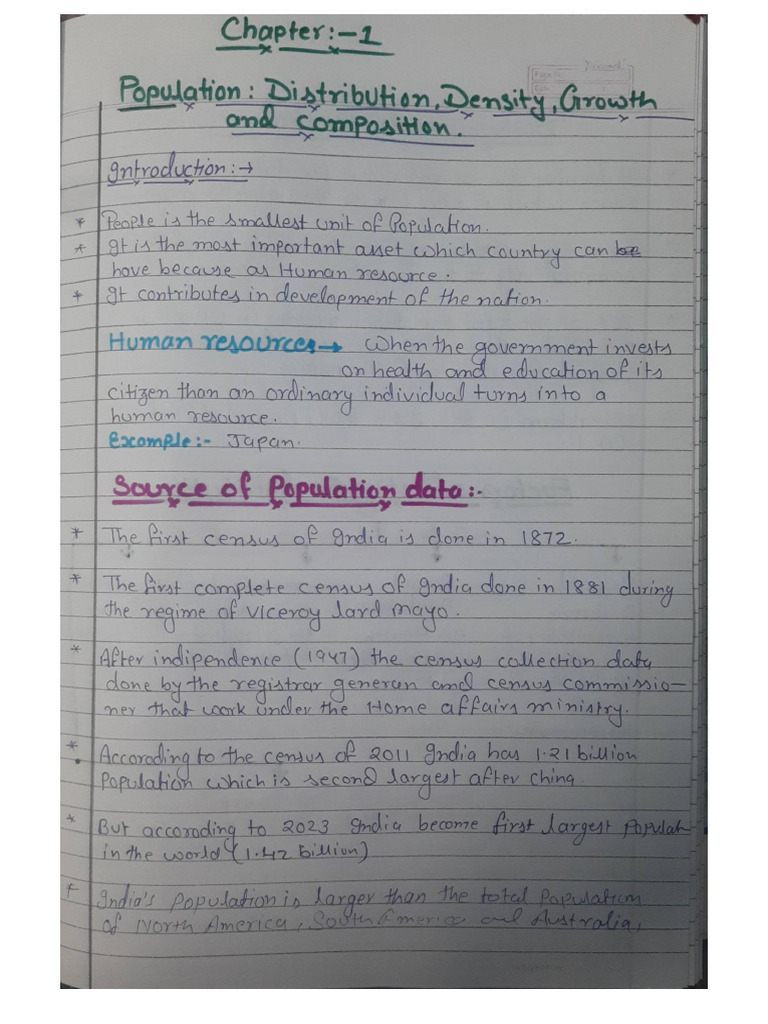 Chapter:-1
Population: Distribution, Density, Growth
and composition.
Introduction:→
* People is the smallest unit of Population.
* It is the most important asset which country can be
have because as Human resource.
* It contributes in development of the nation.
Human resources→ When the government invests
on health and education of its
citizen than an ordinary individual turns into a
human resource.
Example:- Japan.
Source of Population data:-
* The first census of India is done in 1872.
* The first complete census of India done in 1881 during
the regime of Viceroy lard mayo.
* After indipendence (1947) the census collection data
done by the registrar generan and census commissio-
ner that work under the Home affairs ministry.
* Accoroding to the census of 2011 India has 1.21 billion
Population which is second largest after china.
* But accoroding to 2023 India become first largest Populat
in the world (1.42 billion)
* India's Population is larger than the total Population
of North America, South America and Australia,